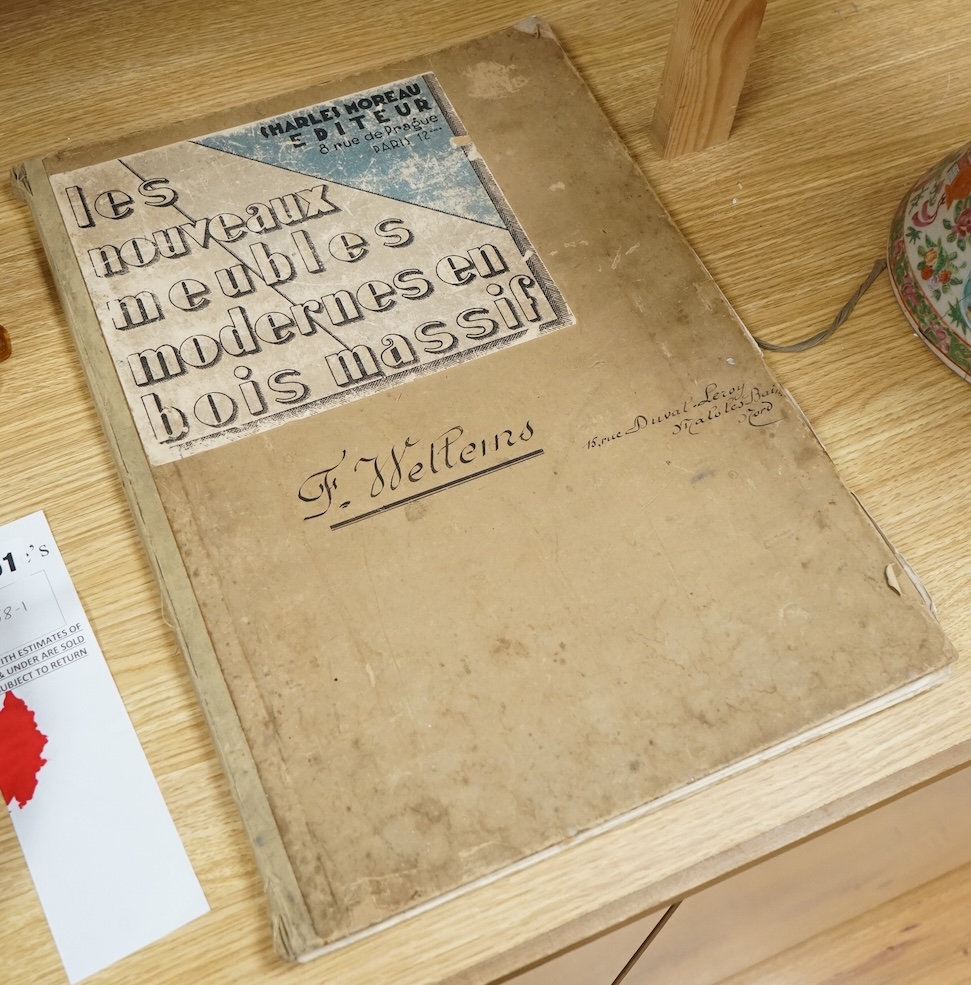 CHARLES MOREAU
EDITEUR
8 rue de Prague
PARIS 12
les
nouveaux
meubles
modernes en
bois massif
F. Wellems
15, rue Duval-Leroy
Malo les Bains
Nord
1
's
8-1
ITH ESTIMATES OF
& UNDER ARE SOLD
UBJECT TO RETURN